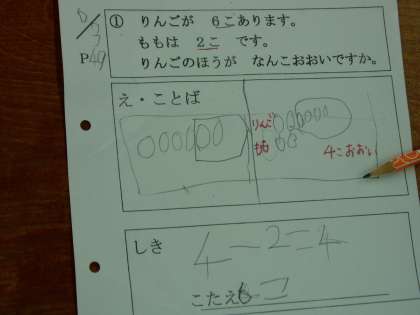 ① りんごが 6こあります。
ももは 2こ です。
りんごのほうが なんこおおいですか。
え・ことば
りんご
もも
4こおおい
しき
4-2=4
こたえ6こ